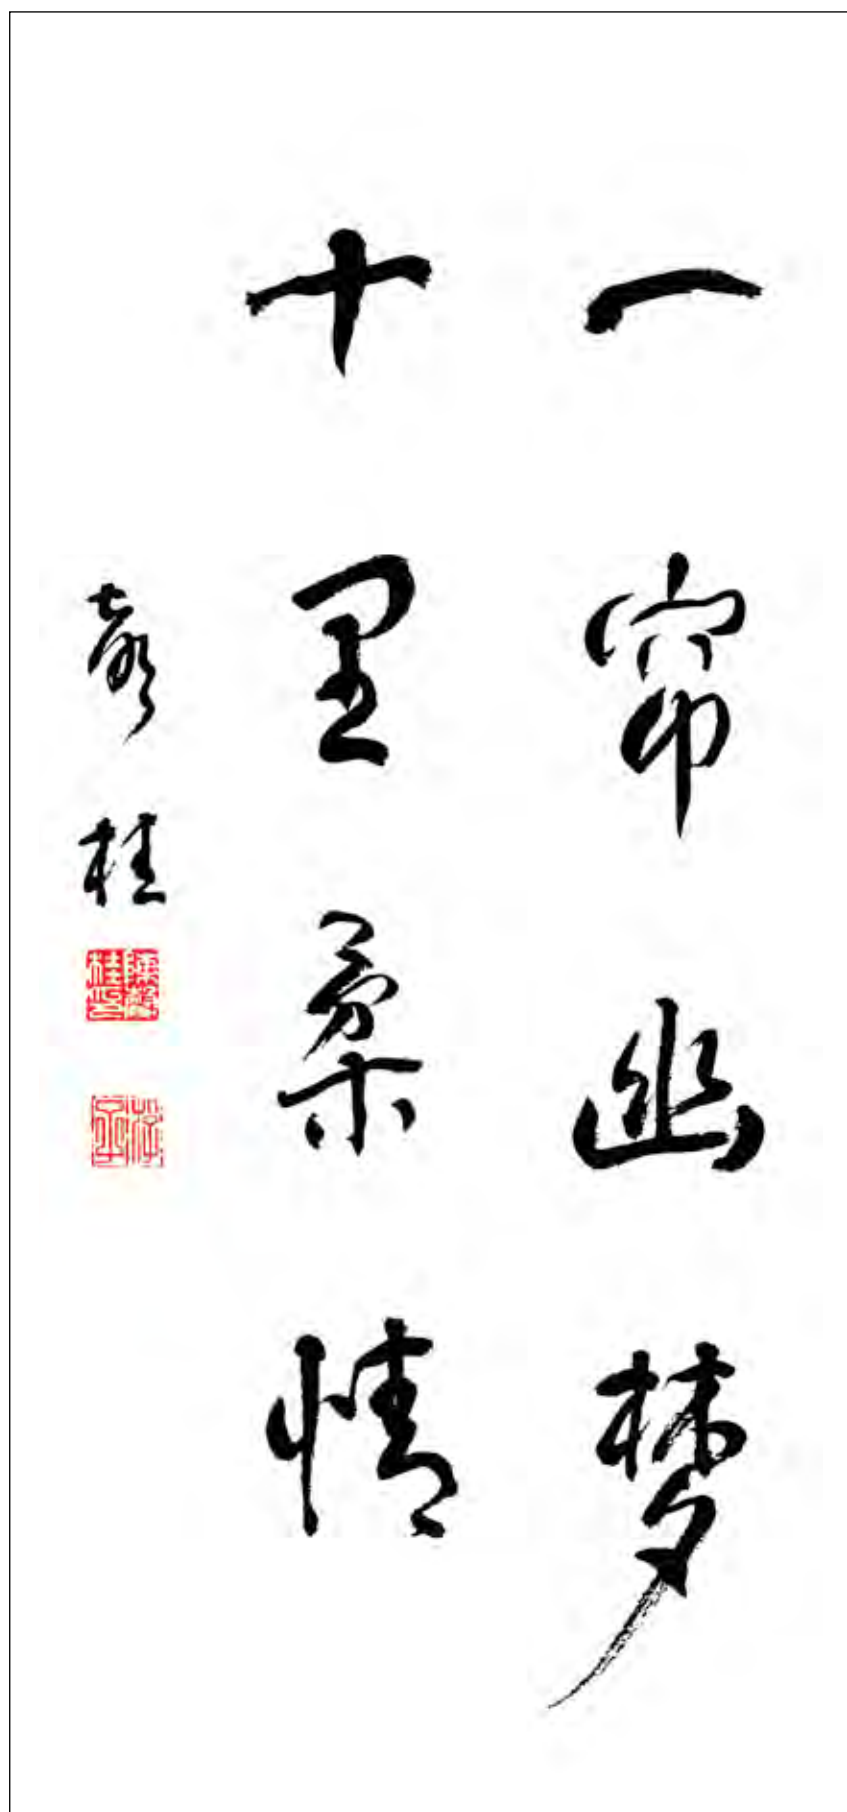 一帘幽梦
十里柔情
馨桂